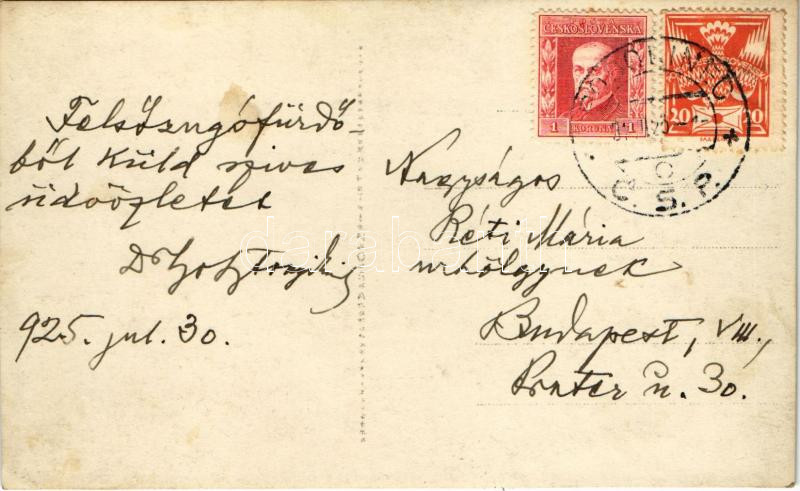 Felsőzugófürdő
ből küld szives
üdvözletet
Dr
925. jul. 30.
ČESKOSLOVENSKA
1 KORUNA 1
20 20
Nagyságos
Réti Mária
urhölgynek
Budapest, VIII.,
Prater u. 30.
darabanth